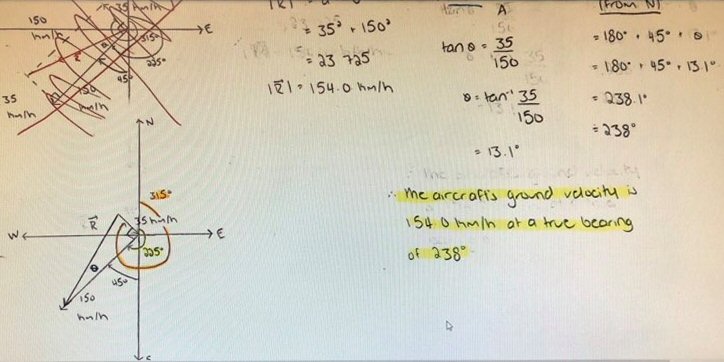 35 km/h
150
km/h
E
315°
225°
45°
R
150
km/h
35
km/h
= 35² + 150²
= 23 725
|R| = 154.0 km/h
A
tan θ = 35
150
θ = tan⁻¹ 35
150
= 13.1°
(from N)
= 180° + 45° + θ
= 180° + 45° + 13.1°
= 238.1°
≐ 238°
N
315°
R
35 km/h
W
E
225°
θ
45°
150
km/h
S
∴ The aircraft's ground velocity is
154.0 km/h at a true bearing
of 238°